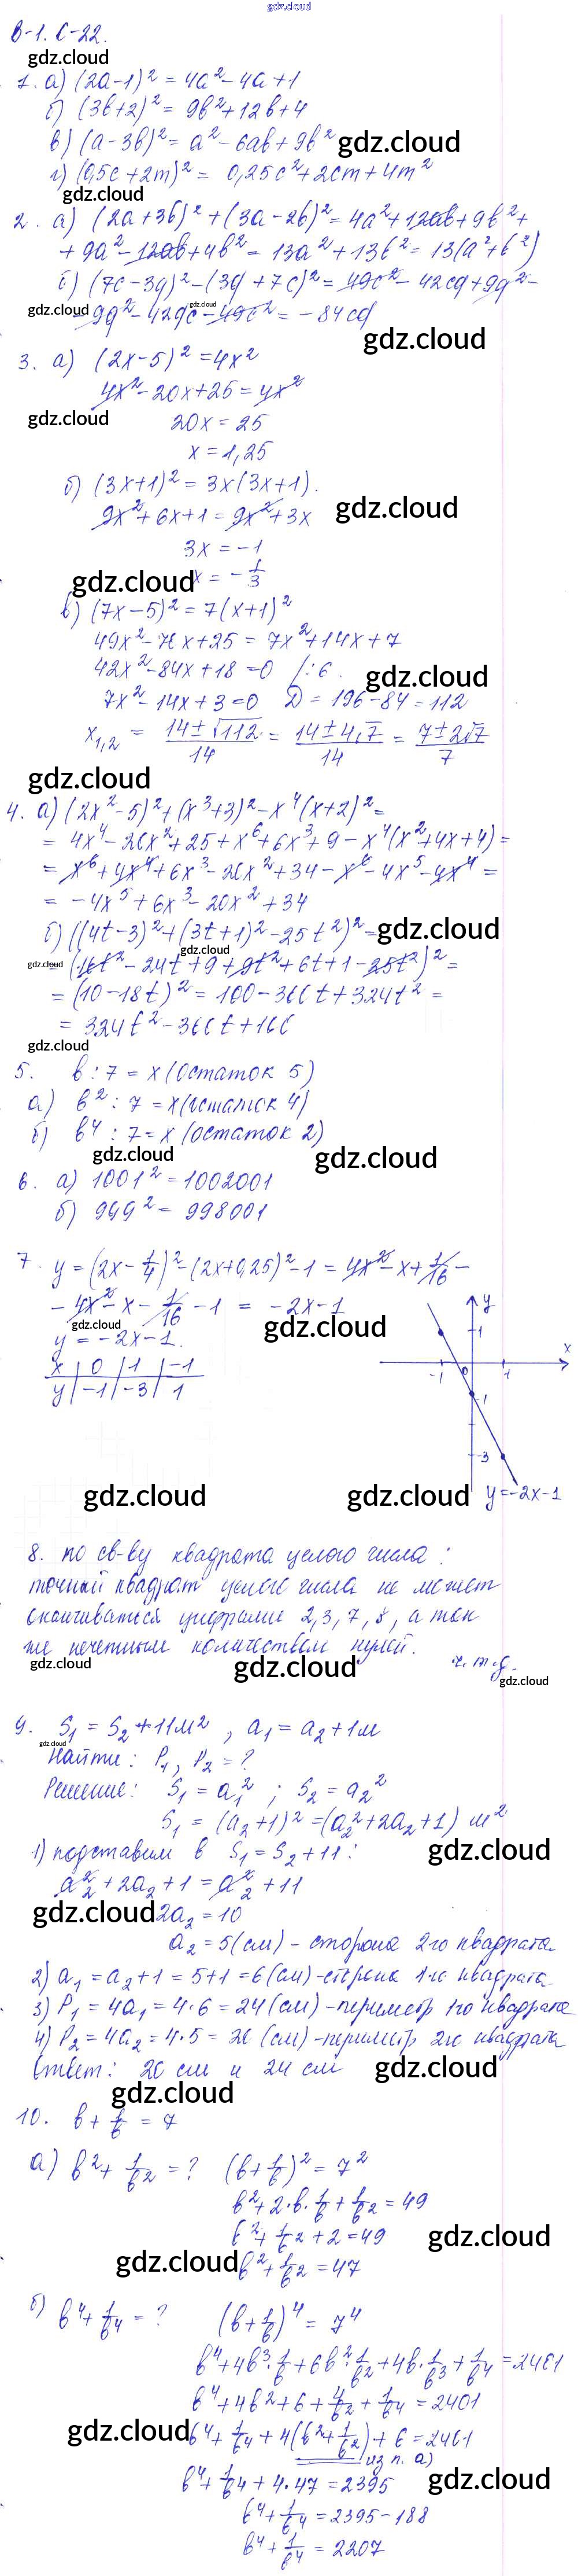 gdz.cloud
В-1. С-22.
gdz.cloud
1. а) (2a-1)² = 4a²-4a+1
б) (3b+2)² = 9b²+12b+4
в) (a-3b)² = a²-6ab+9b² gdz.cloud
г) (0,5c+2m)² = 0,25c²+2cm+4m²
gdz.cloud
2. а) (2a+3b)²+(3a-2b)² = 4a²+12ab+9b²+
+9a²-12ab+4b² = 13a²+13b² = 13(a²+b²)
б) (7c-3d)²-(3d+7c)² = 49c²-42cd+9d²-
gdz.cloud -9d²-42dc-49c² = -84cd
gdz.cloud
gdz.cloud
3. а) (2x-5)² = 4x²
4x²-20x+25 = 4x²
gdz.cloud 20x = 25
x = 1,25
б) (3x+1)² = 3x(3x+1).
9x²+6x+1 = 9x²+3x gdz.cloud
3x = -1
gdz.cloud x = -1/3
в) (7x-5)² = 7(x+1)²
49x²-70x+25 = 7x²+14x+7
42x²-84x+18 = 0 /:6. gdz.cloud
7x²-14x+3=0 D = 196-84 = 112
x₁,₂ = (14±√112)/14 = (14±4√7)/14 = (7±2√7)/7
gdz.cloud
4. а) (2x²-5)²+(x³+3)²-x⁴(x+2)² =
= 4x⁴-20x²+25+x⁶+6x³+9-x⁴(x²+4x+4) =
= x⁶+4x⁴+6x³-20x²+34-x⁶-4x⁵-4x⁴ =
= -4x⁵+6x³-20x²+34
б) ((4t-3)²+(3t+1)²-25t²)² = gdz.cloud
gdz.cloud
gdz.cloud (16t²-24t+9+9t²+6t+1-25t²)² =
= (10-18t)² = 100-360t+324t² =
= 324t²-360t+100
gdz.cloud
5. b : 7 = x (остаток 5)
а) b² : 7 = x (остаток 4)
б) b⁴ : 7 = x (остаток 2)
gdz.cloud gdz.cloud
6. а) 1001² = 1002001
б) 999² = 998001
7. y = (2x-1/4)²-(2x+0,25)²-1 = 4x²-x+1/16-
-4x²-x-1/16-1 = -2x-1
gdz.cloud gdz.cloud
y = -2x-1.
x | 0 | 1 | -1
y | -1 | -3 | 1
y
1
x
-1 0 1
-1
-3
gdz.cloud gdz.cloud y=-2x-1
8. по св-ву квадрата целого числа :
точный квадрат целого числа не может
оканчиваться цифрами 2,3,7,8, а так
же нечетным количеством нулей.
gdz.cloud gdz.cloud ч.т.д.
gdz.cloud
9. S₁ = S₂+11м², a₁ = a₂+1м
gdz.cloud
Найти: P₁, P₂ = ?
Решение: S₁ = a₁² ; S₂ = a₂²
S₁ = (a₂+1)² = (a₂²+2a₂+1) м²
1) подставим в S₁ = S₂+11: gdz.cloud
a₂²+2a₂+1 = a₂²+11
gdz.cloud 2a₂ = 10
a₂ = 5(см) - сторона 2го квадрата.
2) a₁ = a₂+1 = 5+1 = 6(см) - сторона 1го квадрата
3) P₁ = 4a₁ = 4·6 = 24(см) - периметр 1го квадрата
4) P₂ = 4a₂ = 4·5 = 20(см) - периметр 2го квадрата
Ответ: 20 см и 24 см gdz.cloud
gdz.cloud
10. b+1/b = 7
а) b²+1/b² = ? (b+1/b)² = 7²
b²+2·b·1/b+1/b² = 49
b²+1/b²+2=49 gdz.cloud
gdz.cloud b²+1/b² = 47
б) b⁴+1/b⁴ = ? (b+1/b)⁴ = 7⁴
b⁴+4b³·1/b+6b²·1/b²+4b·1/b³+1/b⁴ = 2401
b⁴+4b²+6+4/b²+1/b⁴ = 2401
gdz.cloud b⁴+1/b⁴+4(b²+1/b²)+6 = 2401
из п. а)
b⁴+1/b⁴+4·47 = 2395 gdz.cloud
b⁴+1/b⁴ = 2395-188
b⁴+1/b⁴ = 2207